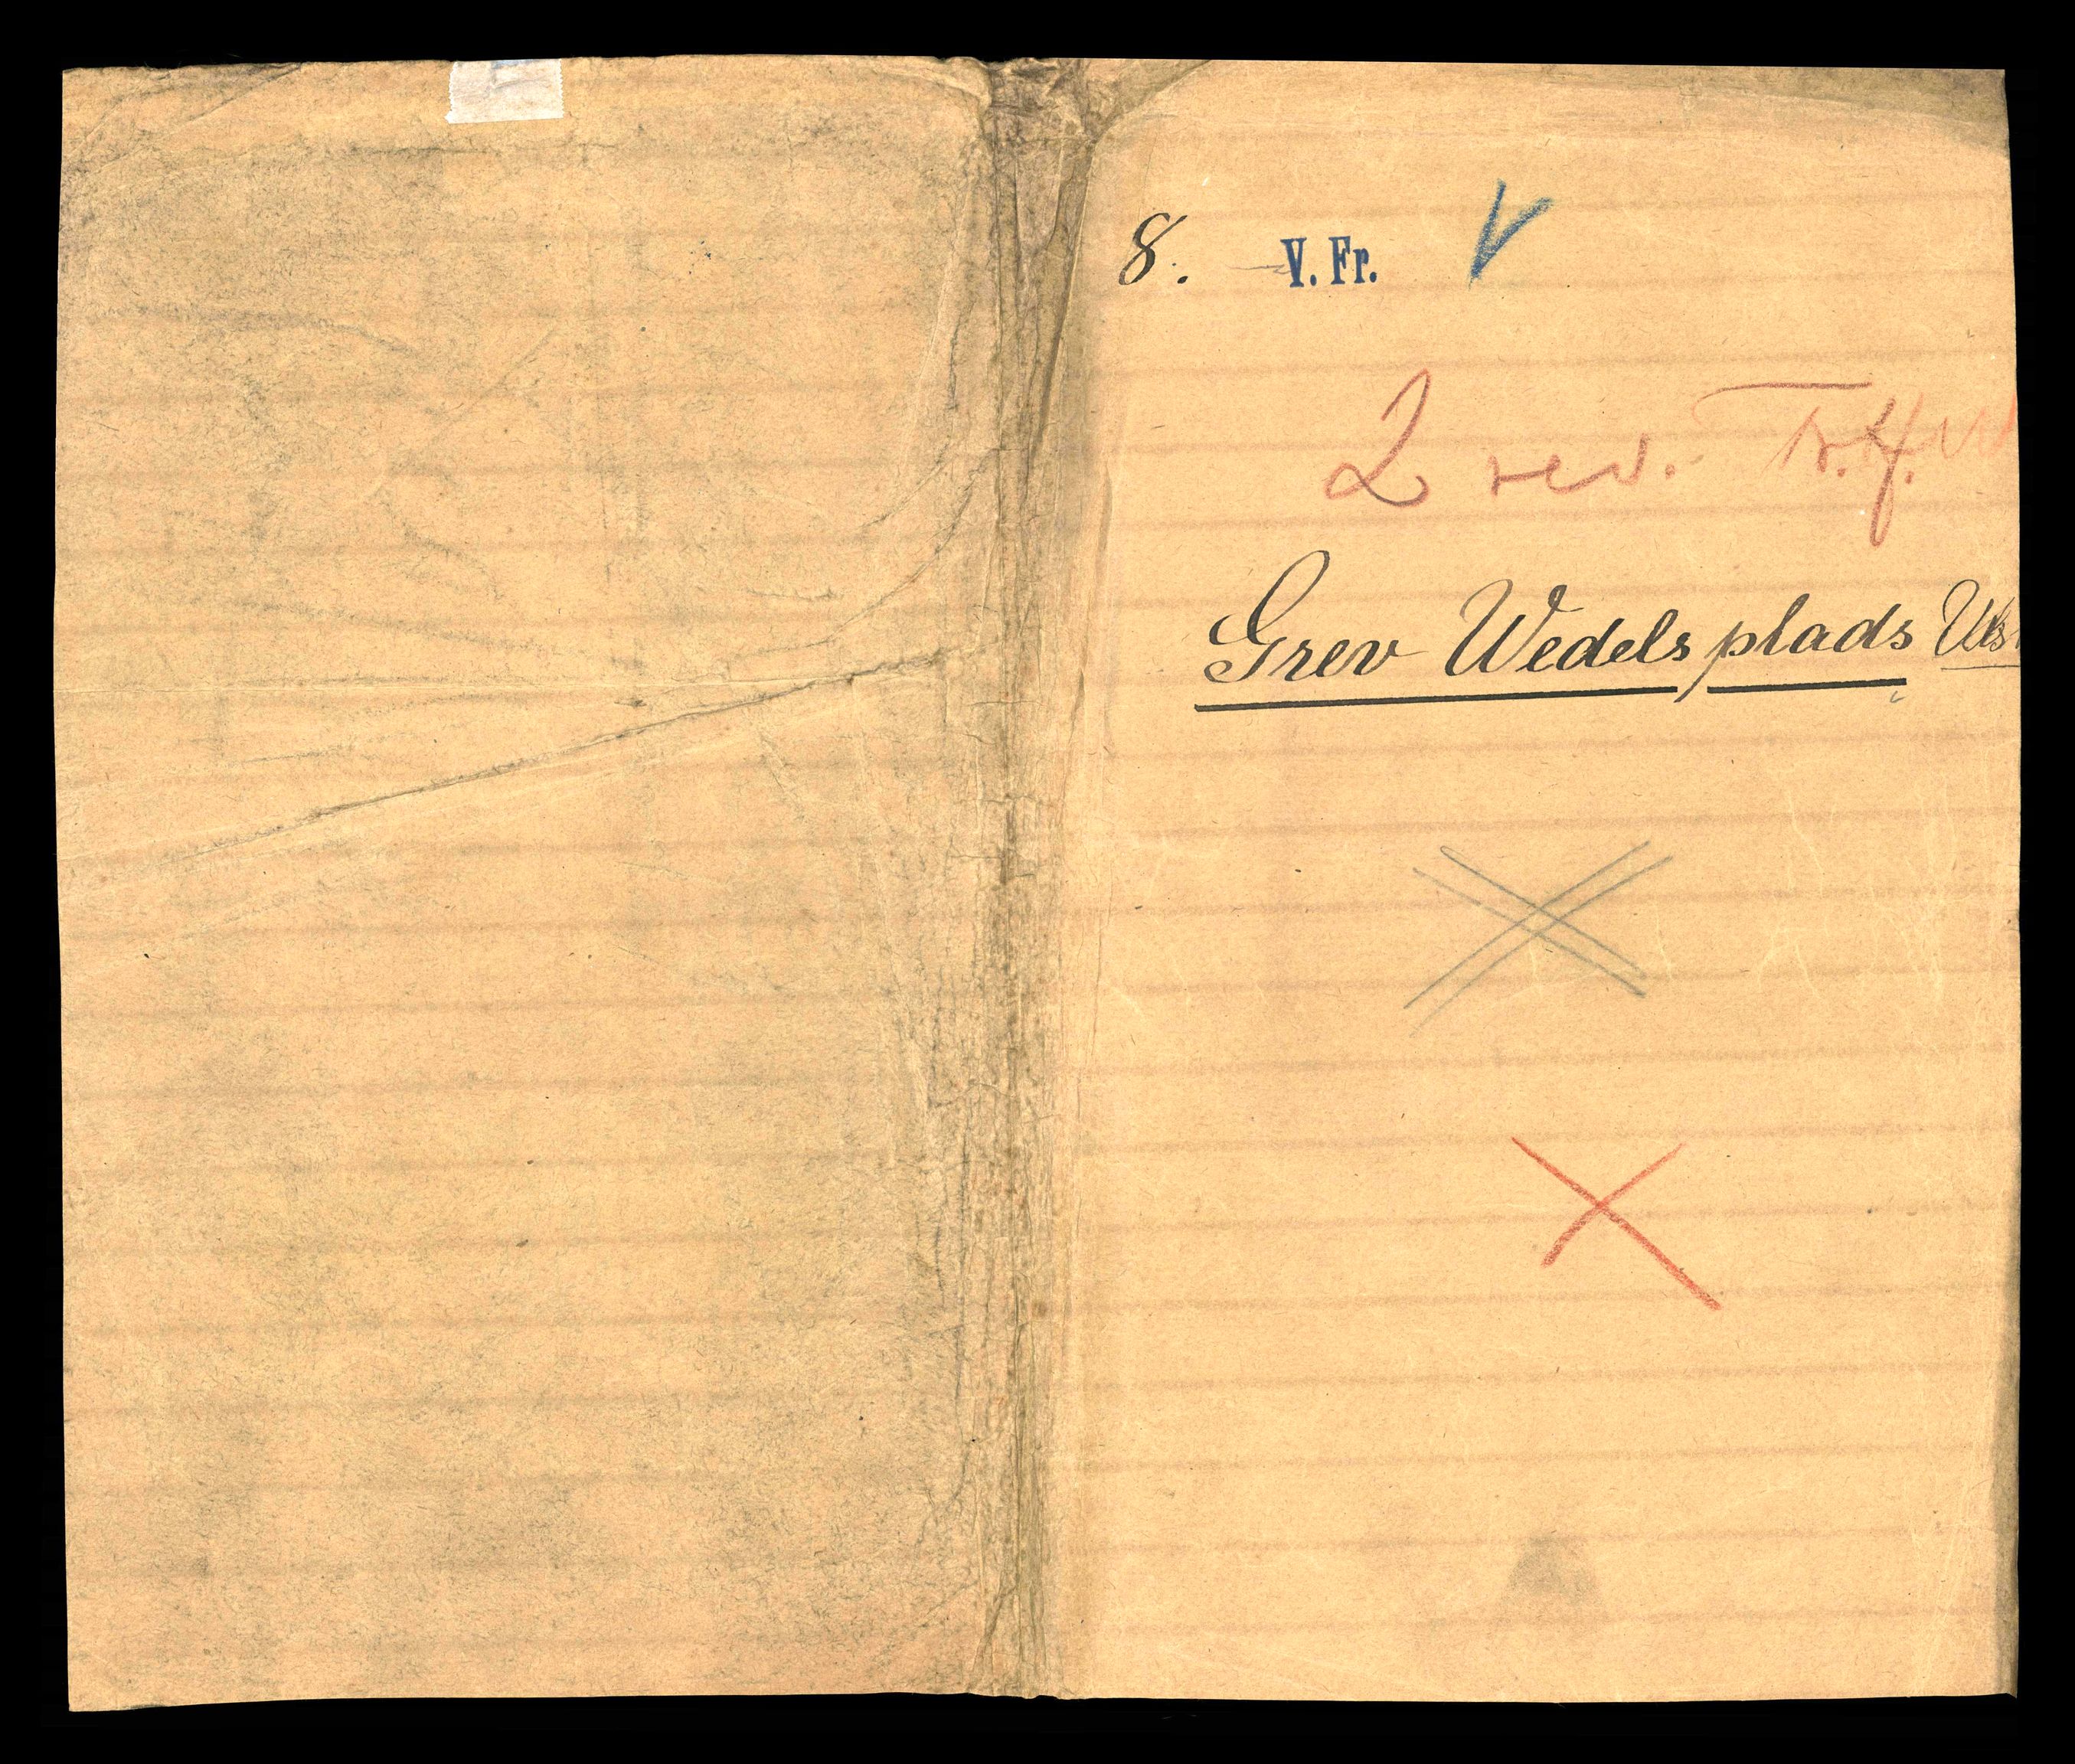 8. V. Fr. V
2 rev.
Grev Wedels plads